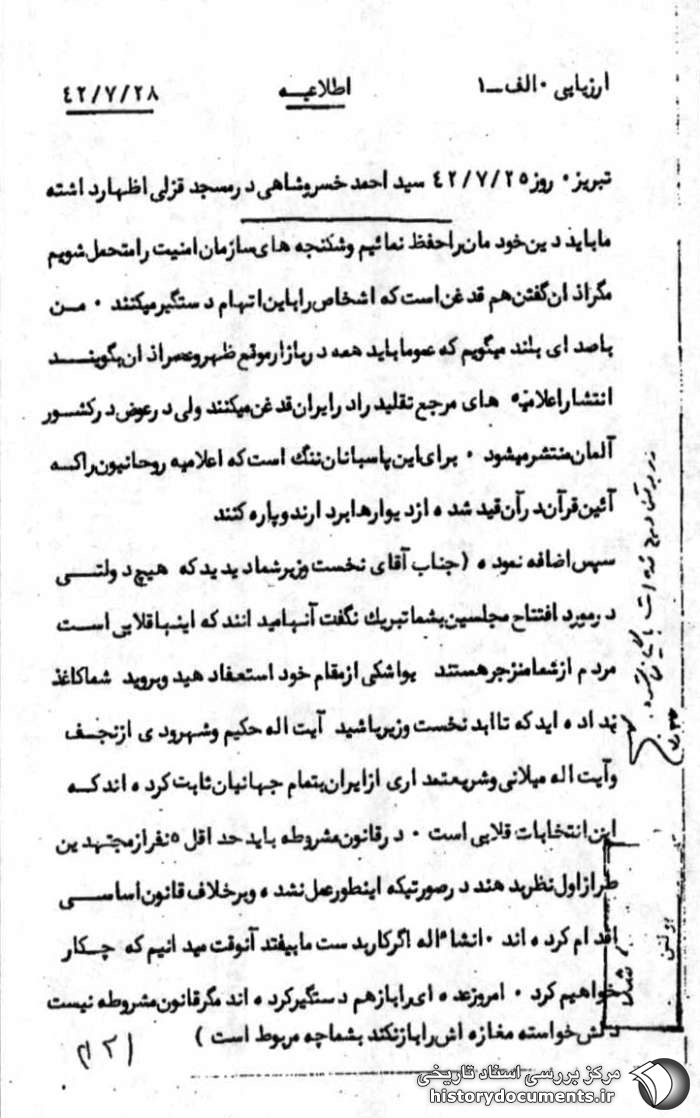 ارزیابی ۰ الف ـ ۱
اطلاعیه
۴۲/۷/۲۸
تبریز ۰ روز ۴۲/۷/۲۵ سید احمد خسروشاهی در مسجد قزلی اظهار داشته
ما باید دین خودمان را حفظ نمائیم و شکنجه های سازمان امنیت را متحمل شویم
مگر اذان گفتن هم قدغن است که اشخاص را باین اتهام دستگیر میکنند ۰ من
با صدای بلند میگویم که عموما باید همه در بازار موقع ظهر و عصر اذان بگویند
انتشار اعلامیه های مرجع تقلید را در ایران قدغن میکنند ولی در عوض در کشور
آلمان منتشر میشود ۰ برای این پاسبانان ننگ است که اعلامیه روحانیون را که
آئین قرآن در آن قید شده از دیوارها بردارند و پاره کنند
سپس اضافه نموده (جناب آقای نخست وزیر شما دیدید که هیچ دولتی
در مورد افتتاح مجلسین بشما تبریک نگفت آنها میدانند که اینها قلابی است
مردم از شما منزجر هستند یواشکی از مقام خود استعفا دهید و بروید شما کاغذ
نداده اید که تا ابد نخست وزیر باشید آیت اله حکیم و شهرودی از نجف
و آیت اله میلانی و شریعتمداری از ایران بتمام جهانیان ثابت کرده اند که
این انتخابات قلابی است ۰ در قانون مشروطه باید حداقل ۵ نفر از مجتهدین
طراز اول نظر بدهند در صورتیکه اینطور عمل نشده و برخلاف قانون اساسی
اقدام کرده اند ۰ انشاءاله اگر کار بدست ما بیفتد آنوقت میدانیم که چکار
خواهیم کرد ۰ امروز عده ای را باز هم دستگیر کرده اند مگر قانون مشروطه نیست
دلش خواسته مغازه اش را باز نکند بشما چه مربوط است )
بولتن
شد
مرکز بررسی اسناد تاریخی
historydocuments.ir